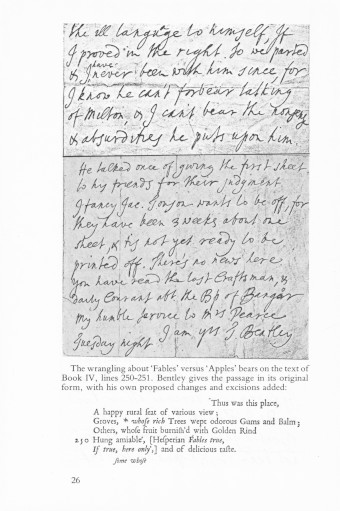 the ill language to himself, If
I proved in the right. So we parted
& I have never been with him since for
I know he can't forbear talking
of Milton, & I can't bear the nonsense
& absurdities he puts upon him.
He talked once of giving the first sheet
to his friends for their judgment
I fancy Jac. Tonson wants to be off, for
they have been 3 weeks about one
sheet, & tis not yet ready to be
printed off. There's no news here
you have read the last Craftsman, &
Daily Courant abt. the Bp of Bangor
My humble service to Mrs Pearce
Tuesday night I am yrs J Bentley
The wrangling about 'Fables' versus 'Apples' bears on the text of
Book IV, lines 250-251. Bentley gives the passage in its original
form, with his own proposed changes and excisions added:
'Thus was this place,
A happy rural seat of various view;
Groves, * whose rich Trees wept odorous Gums and Balm;
Others, whose fruit burnish'd with Golden Rind
250 Hung amiable', [Hesperian Fables true,
If true, here only',] and of delicious taste.
some whose
26